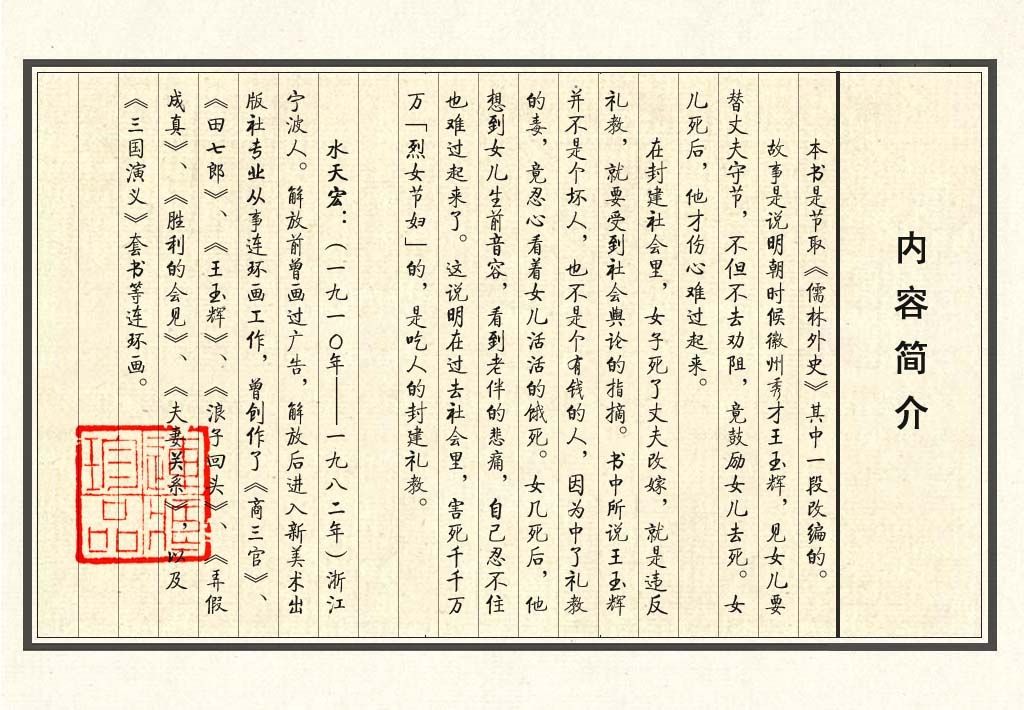 内容简介
本书是节取《儒林外史》其中一段改编的。
故事是说明朝时候徽州秀才王玉辉，见女儿要
替丈夫守节，不但不去劝阻，竟鼓励女儿去死。女
儿死后，他才伤心难过起来。
在封建社会里，女子死了丈夫改嫁，就是违反
礼教，就要受到社会舆论的指摘。书中所说王玉辉
并不是个坏人，也不是个有钱的人，因为中了礼教
的毒，竟忍心看着女儿活活的饿死。女几死后，他
想到女儿生前音容，看到老伴的悲痛，自己忍不住
也难过起来了。这说明在过去社会里，害死千千万
万「烈女节妇」的，是吃人的封建礼教。
水天宏：（一九一〇年——一九八二年）浙江
宁波人。解放前曾画过广告，解放后进入新美术出
版社专业从事连环画工作，曾创作了《商三官》、
《田七郎》、《王玉辉》、《浪子回头》、《弄假
成真》、《胜利的会见》、《夫妻关系》，以及
《三国演义》套书等连环画。